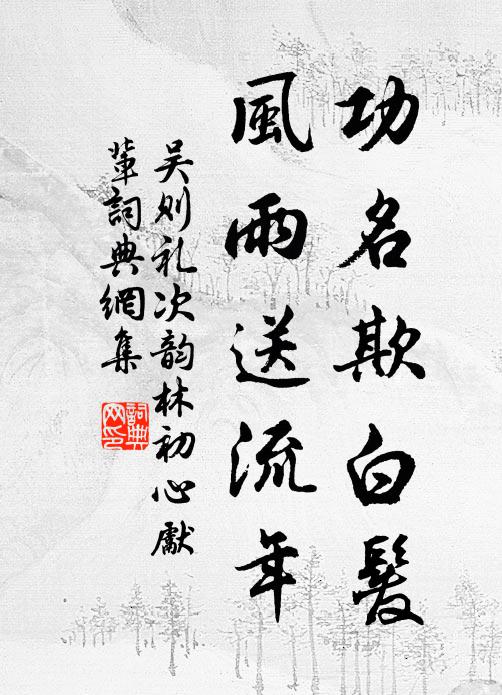 功名欺白髮
風雨送流年
吴则礼次韵林初心獻
輩詞典網集
詞典网印